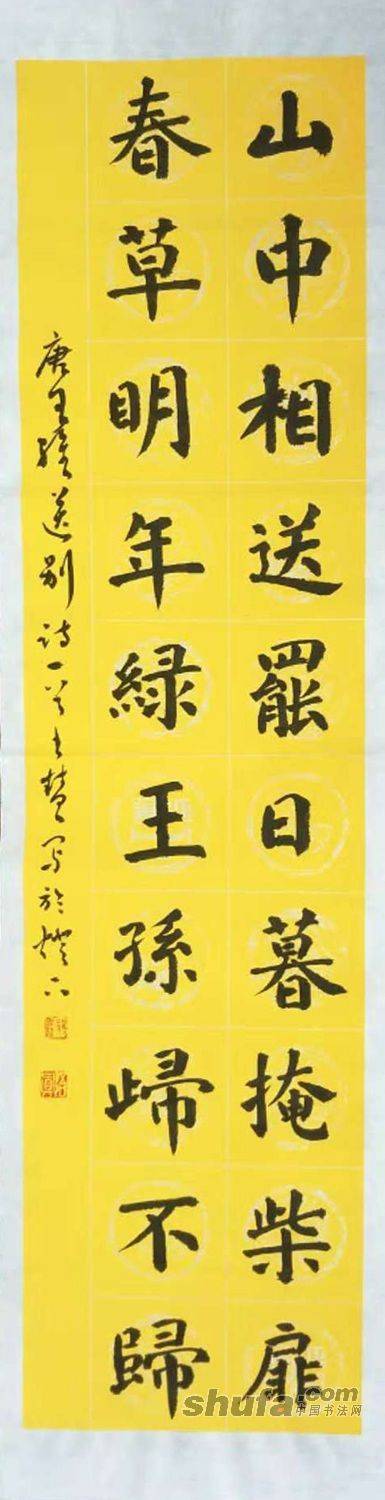 山中相送罷日暮掩柴扉
春草明年綠王孫歸不歸
唐王維送別詩一首
shufa.com
中国书法网